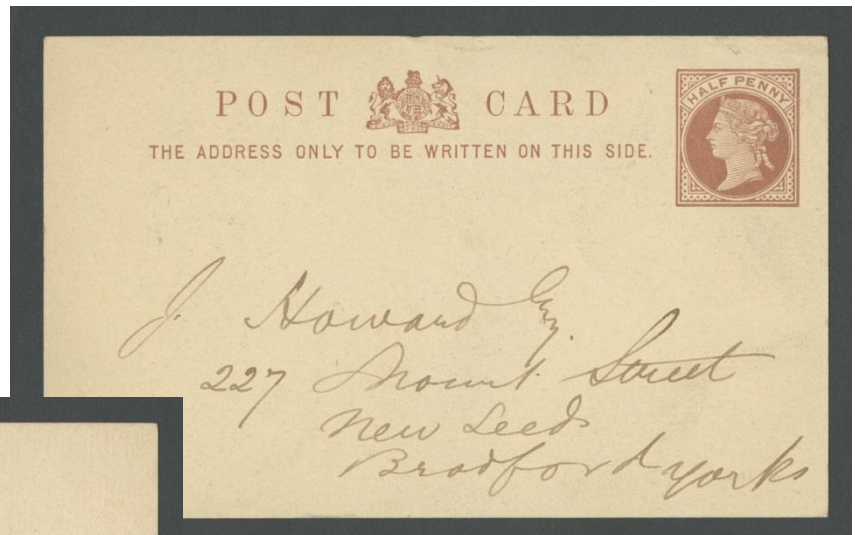 POST CARD
HALF PENNY
THE ADDRESS ONLY TO BE WRITTEN ON THIS SIDE.
J. Howard Esq.
227 Mount Street
New Leeds
Bradford Yorks